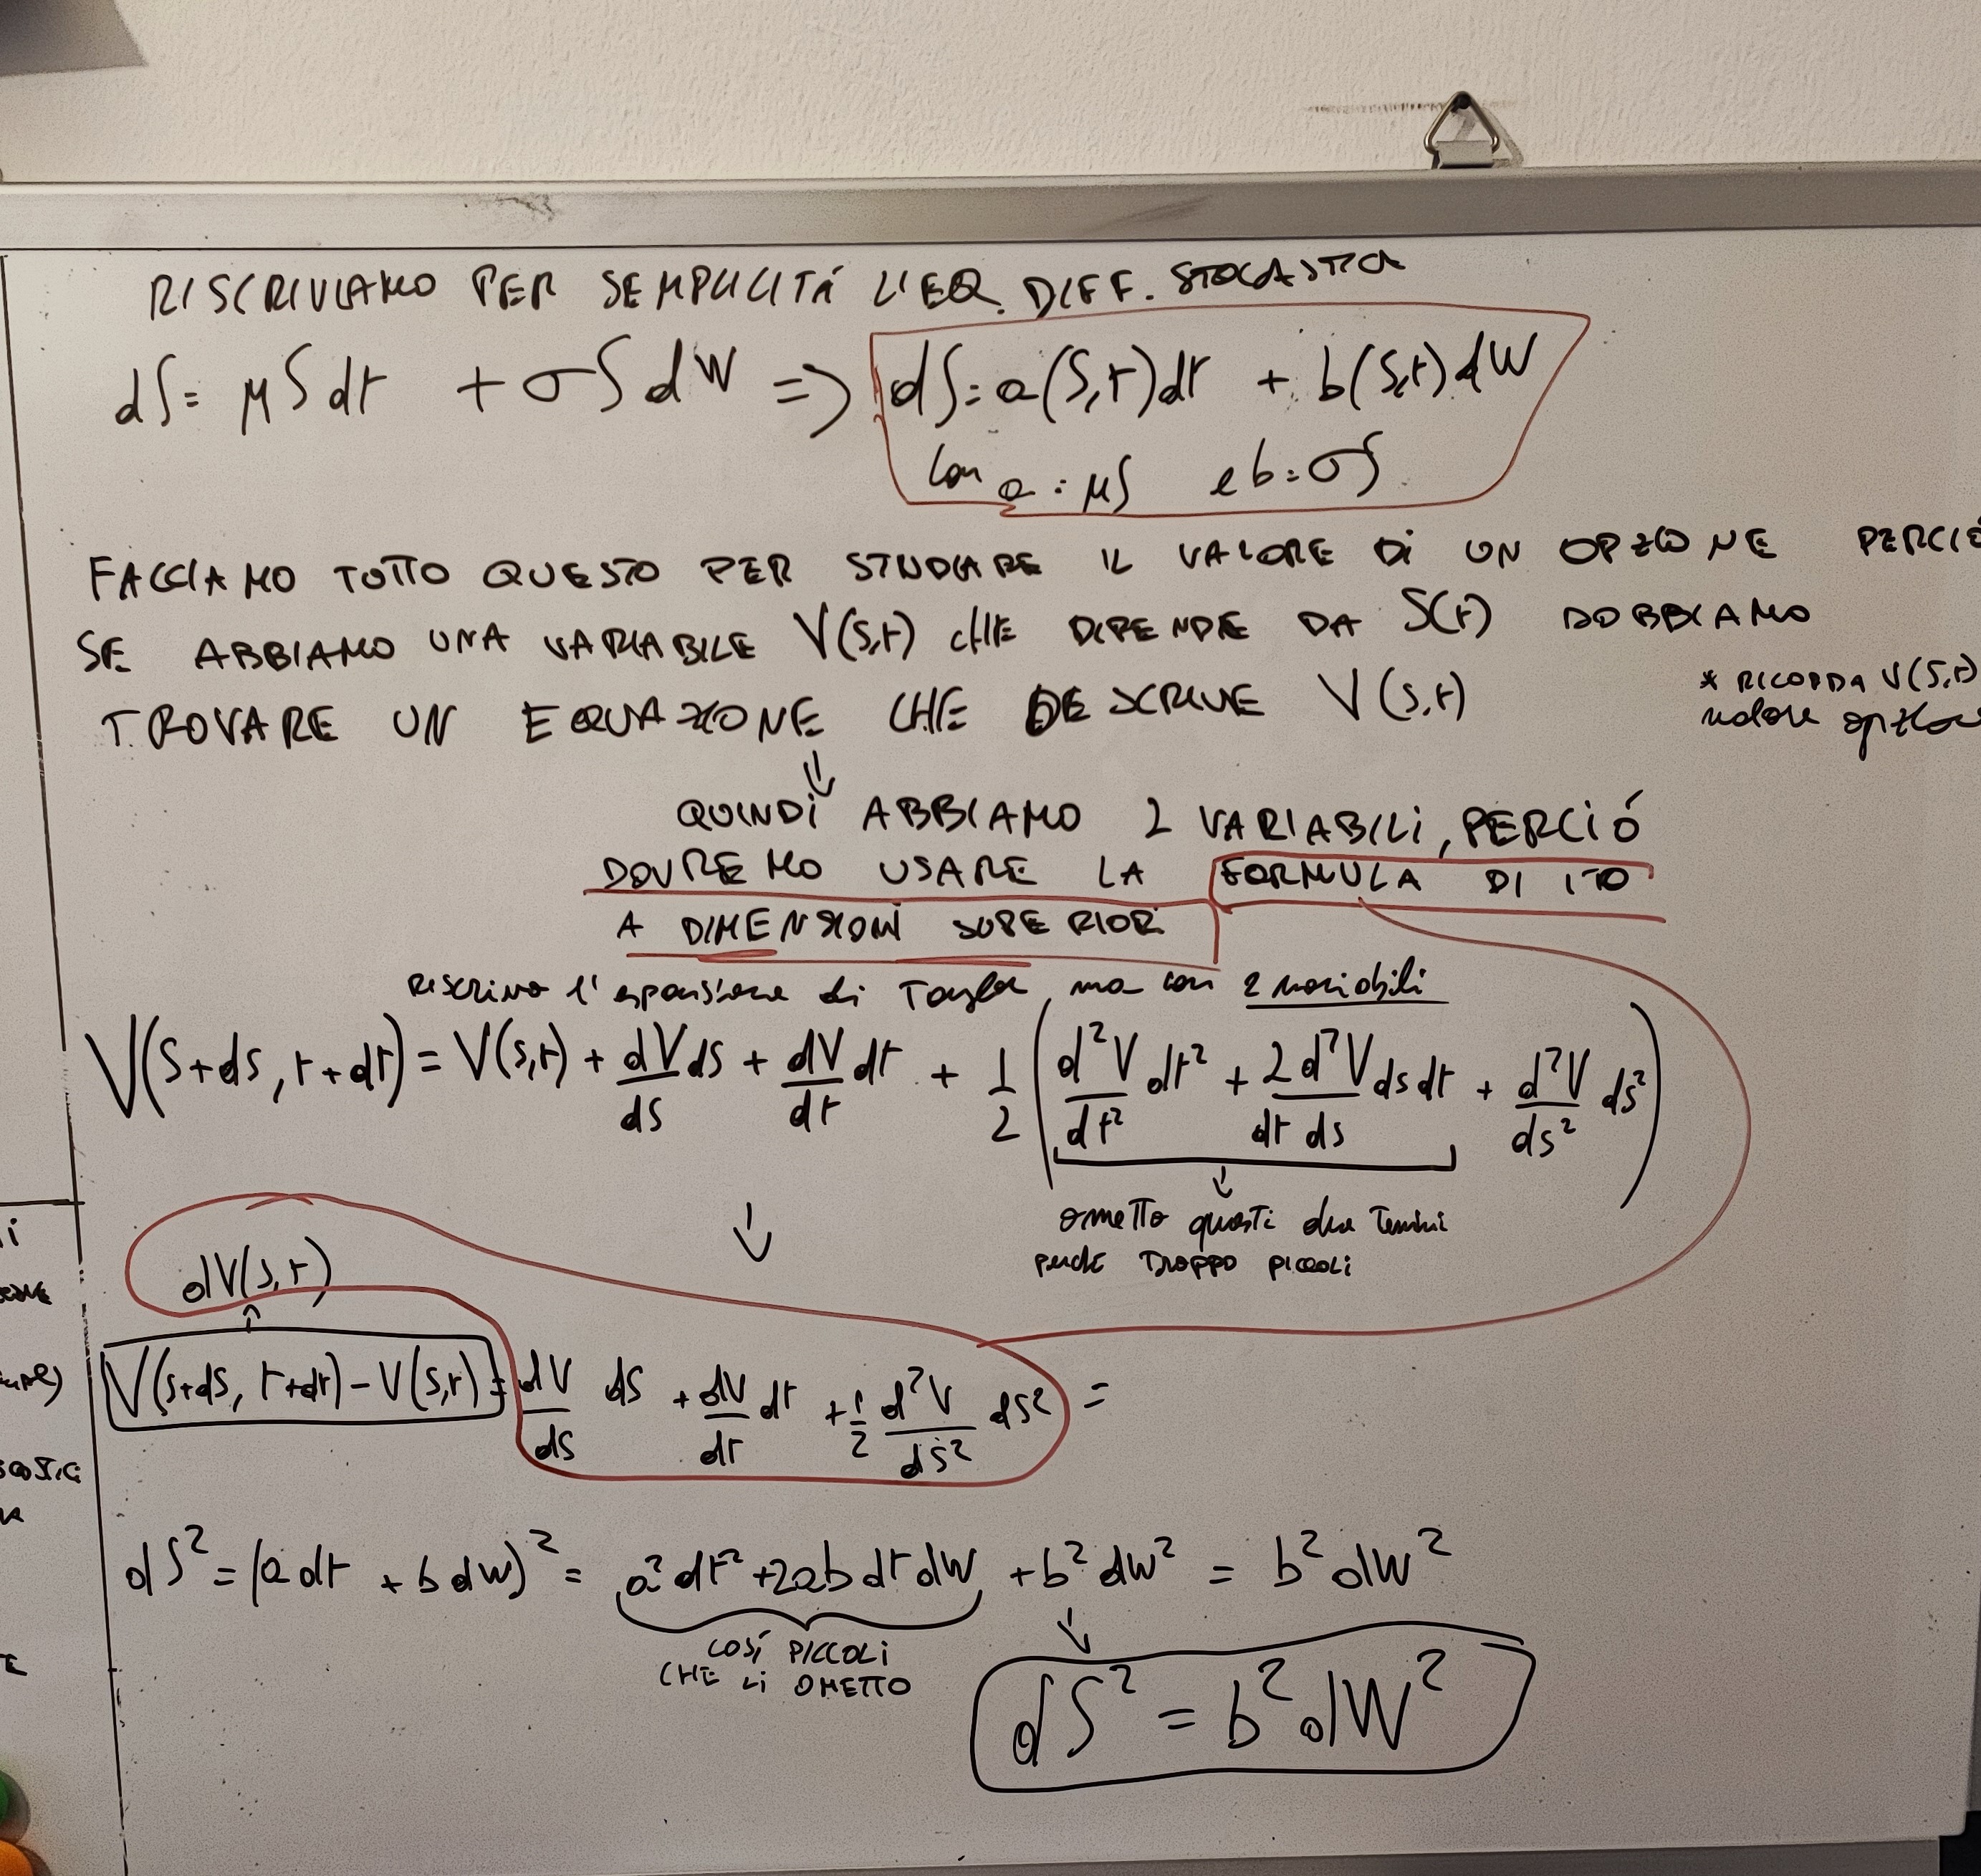 RISCRIVIAMO PER SEMPLICITÁ L'EQ. DIFF. STOCASTICA
dS = μS dt + σS dW => dS = a(S,t)dt + b(S,t)dW
con a = μS e b = σS
FACCIAMO TUTTO QUESTO PER STUDIARE IL VALORE DI UN OPZIONE PERCIÓ
SE ABBIAMO UNA VARIABILE V(S,t) CHE DIPENDE DA S(t) DOBBIAMO
TROVARE UN EQUAZIONE CHE DESCRIVE V(S,t)
* RICORDA V(S,t)
valore opzione
⇓
QUINDI ABBIAMO 2 VARIABILI, PERCIÓ
DOVREMO USARE LA FORMULA DI ITO
A DIMENSIONI SUPERIORI
RISCRIVO l'espansione di Taylor, ma con 2 variabili
V(S+dS, t+dt) = V(S,t) + dV/dS dS + dV/dt dt + 1/2 (d²V/dt² dt² + 2d²V/dt dS dS dt + d²V/dS² dS²)
↓
ometto questi due termini
perché troppo piccoli
↓
dV(S,t)
↑
V(S+dS, t+dt) - V(S,t) = dV/dS dS + dV/dt dt + 1/2 d²V/dS² dS² =
dS² = (a dt + b dW)² = a² dt² + 2ab dt dW + b² dW² = b² dW²
COSÍ PICCOLI
CHE LI OMETTO
↓
dS² = b² dW²